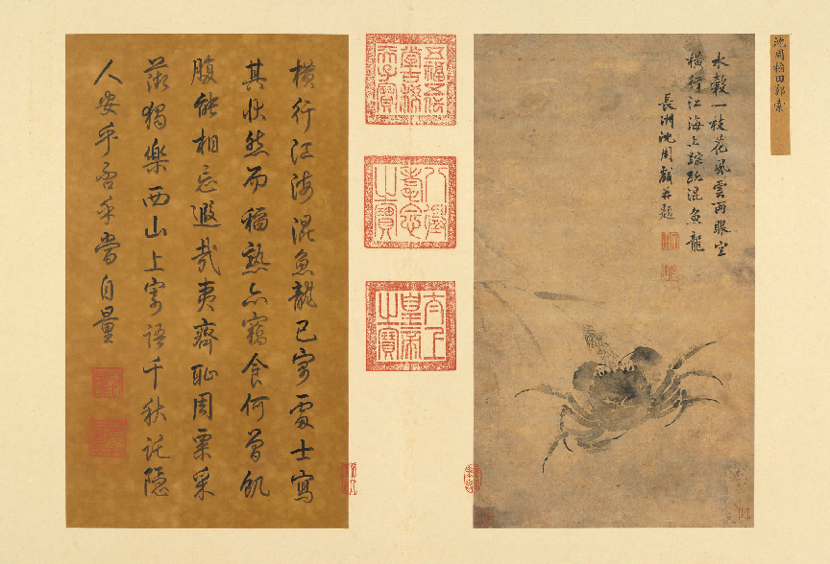 沈周稻田郭索
水穀一枝花風雲兩眼空
橫行江海上踪跡混魚龍
長洲沈周戲并題
五福五代
堂古稀
天子寶
八徵
耄念
之寶
太上
皇帝
之寶
橫行江海混魚龍已寄士寫
其狀然而稻熟亦竊食何曾飢
腹能相忘遐哉夷齊恥周粟采
薇獨樂西山上寄語千秋託隱
人安乎否乎當自量